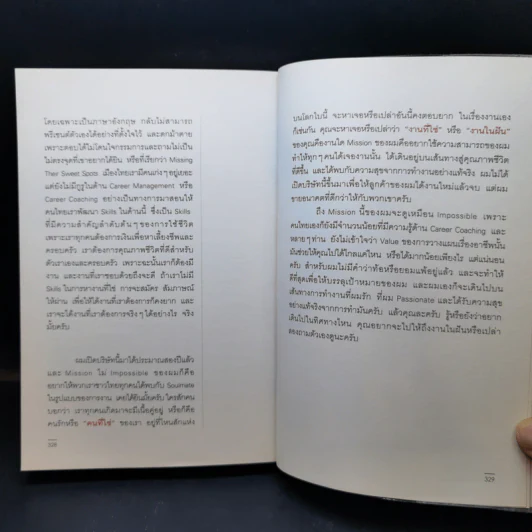 โดยเฉพาะเป็นภาษาอังกฤษ กลับไม่สามารถ
พรีเซนต์ตัวเองได้อย่างที่ตั้งใจไว้ และตกม้าตาย
เพราะตอบได้ไม่โดนใจกรรมการและถามไม่เป็น
ไม่ตรงจุดที่เขาอยากได้ยิน หรือที่เรียกว่า Missing
Their Sweet Spots เมืองไทยเรามีคนเก่งๆ เยอะ
แต่ยังไม่มีกูรูในด้าน Career Management หรือ
Career Coaching อย่างเป็นทางการมาสอนให้
คนไทยเราพัฒนา Skills ในด้านนี้ ซึ่งเป็น Skills
ที่มีความสำคัญลำดับต้นๆ ของการใช้ชีวิต
เพราะเราทุกคนต้องการเงินเพื่อหาเลี้ยงชีพและ
ครอบครัว เราต้องการคุณภาพชีวิตที่ดีสำหรับ
ตัวเราเองและครอบครัว เพราะฉะนั้นเราก็ต้องมี
งาน และงานที่เราชอบด้วยถึงจะดี ถ้าเราไม่มี
Skills ในการหางานที่ใช่ การจะสมัคร สัมภาษณ์
ให้ผ่าน เพื่อให้ได้งานที่เราต้องการก็คงยาก และ
เราจะได้งานที่เราต้องการจริงๆ ได้อย่างไร จริง
มั้ยครับ
ผมเปิดบริษัทนี้มาได้ประมาณสองปีแล้ว
และ Mission ไม่ Impossible ของผมก็คือ
อยากให้พวกเราชาวไทยทุกคนได้พบกับ Soulmate
ในรูปแบบของการงาน เคยได้ยินมั้ยครับ ใครสักคน
บอกว่า เราทุกคนเกิดมาจะมีเนื้อคู่อยู่ หรือก็คือ
คนรักหรือ "คนที่ใช่" ของเรา อยู่ที่ไหนสักแห่ง
328
บนโลกใบนี้ จะหาเจอหรือเปล่าอันนี้คงตอบยาก ในเรื่องงานเอง
ก็เช่นกัน คุณจะหาเจอหรือเปล่าว่า "งานที่ใช่" หรือ "งานในฝัน"
ของคุณคืองานใด Mission ของผมคืออยากใช้ความสามารถของผม
ทำให้ทุกๆ คนได้เจองานนั้น ได้เดินอยู่บนเส้นทางสู่คุณภาพชีวิต
ที่ดีขึ้น และได้พบกับความสุขจากการทำงานอย่างแท้จริง ผมไม่ได้
เปิดบริษัทนี้ขึ้นมาเพื่อให้ลูกค้าของผมได้งานใหม่แล้วจบ แต่ผม
ขายอนาคตที่ดีกว่าให้กับพวกเขาครับ
ถึง Mission นี้ของผมจะดูเหมือน Impossible เพราะ
คนไทยเองก็ยังมีจำนวนน้อยที่มีความรู้ด้าน Career Coaching และ
หลายๆ ท่าน ยังไม่เข้าใจว่า Value ของการวางแผนเรื่องอาชีพนั้น
มันช่วยให้คุณไปได้ไกลแค่ไหน หรือได้ผมาก้น้อยเพียงไร แต่แน่นอน
ครับ สำหรับผมไม่มีคำว่าท้อหรือยอมแพ้อยู่แล้ว และจะทำให้
ดีที่สุดเพื่อให้บรรลุเป้าหมายของผม และผมเองก็จะเดินไปบน
เส้นทางการทำงานที่ผมรัก ที่ผม Passionate และได้รับความสุข
อย่างแท้จริงจากการทำมันครับ แล้วคุณล่ะครับ รู้หรือยังว่าอยาก
เดินไปในทิศทางไหน คุณอยากจะไปให้ถึงงานในฝันหรือเปล่า
ลองถามตัวเองดูนะครับ
329